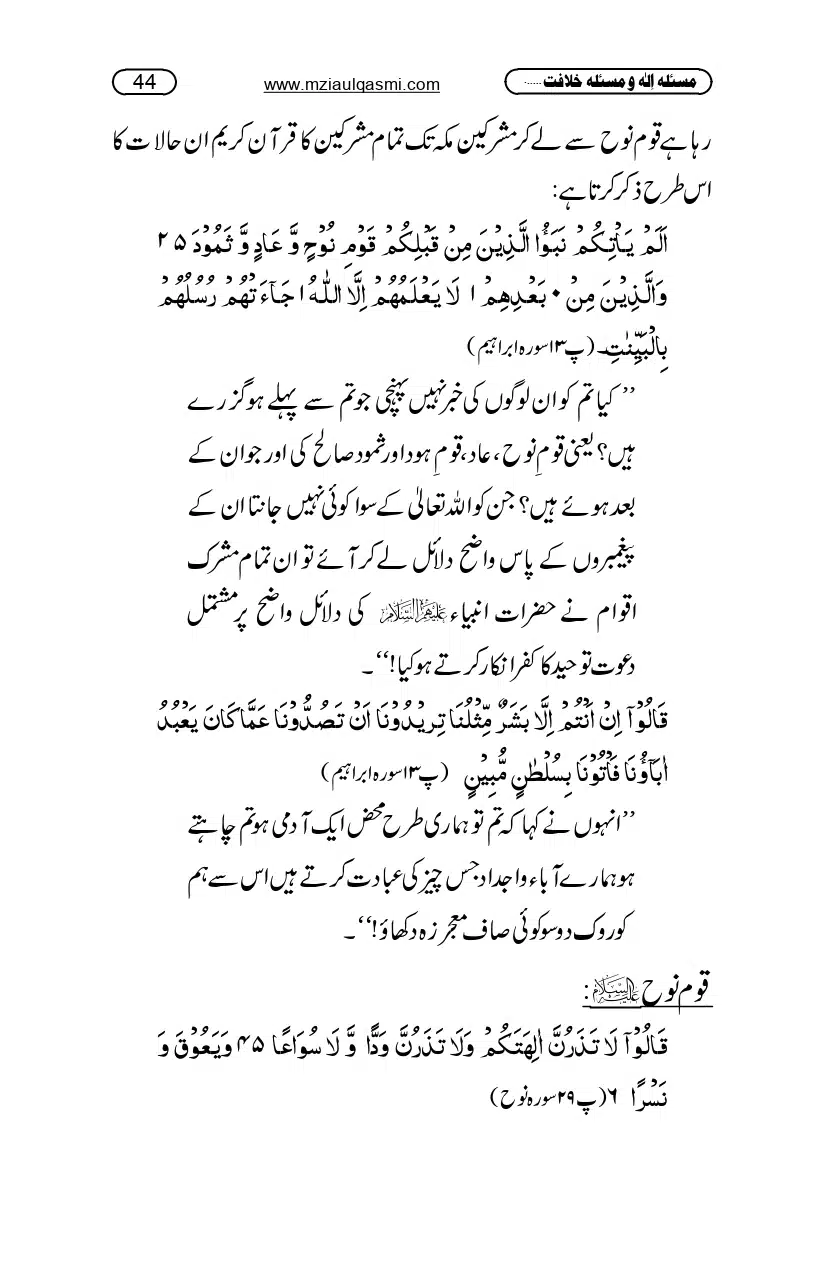 مسئلہ اِلٰہ و مسئلہ خلافت ...... www.mziaulqasmi.com 44
رہا ہے قوم نوح سے لے کر مشرکین مکہ تک تمام مشرکین کا قرآن کریم ان حالات کا
اس طرح ذکر کرتا ہے:
اَلَمْ یَاْتِکُمْ نَبَؤُا الَّذِیْنَ مِنْ قَبْلِکُمْ قَوْمِ نُوْحٍ وَّ عَادٍ وَّ ثَمُوْدَ ۲۵
وَالَّذِیْنَ مِنْ ۰ بَعْدِھِمْ ا لَا یَعْلَمُھُمْ اِلَّا اللّٰہُ ا جَآءَ تْھُمْ رُسُلُھُمْ
بِالْبَیِّنٰتِ۔ (پ۱۳سورہ ابراہیم)
’’کیا تم کو ان لوگوں کی خبر نہیں پہنچی جو تم سے پہلے ہو گزرے
ہیں؟ یعنی قومِ نوح، عاد، قومِ ہود اور ثمود صالح کی اور جو ان کے
بعد ہوئے ہیں؟ جن کو اللہ تعالیٰ کے سوا کوئی نہیں جانتا ان کے
پیغمبروں کے پاس واضح دلائل لے کر آئے تو ان تمام مشرک
اقوام نے حضرات انبیاء علیہم السلام کی دلائل واضح پر مشتمل
دعوت توحید کا کفر انکار کرتے ہو کیا!‘‘۔
قَالُوْآ اِنْ اَنْتُمْ اِلَّا بَشَرٌ مِّثْلُنَا تِرِیْدُوْنَا اَنْ تَصُدُّوْنَا عَمَّا کَانَ یَعْبُدُ
اٰبَآؤُنَا فَاْتُوْنَا بِسُلْطٰنٍ مُّبِیْنٍ (پ۱۳سورہ ابراہیم)
’’انہوں نے کہا کہ تم تو ہماری طرح محض ایک آدمی ہو تم چاہتے
ہو ہمارے آباء واجداد جس چیز کی عبادت کرتے ہیں اس سے ہم
کو روک دو سو کوئی صاف معجرزہ دکھاؤ!‘‘۔
قوم نوح علیہ السلام:
قَالُوْآ لَا تَذَرُنَّ اٰلِھَتَکُمْ وَلَا تَذَرُنَّ وَدًّا وَّ لَا سُوَاعًا ۴۵ وَیَعُوْقَ وَ
نَسْرًا ۶ (پ۲۹سورہ نوح)